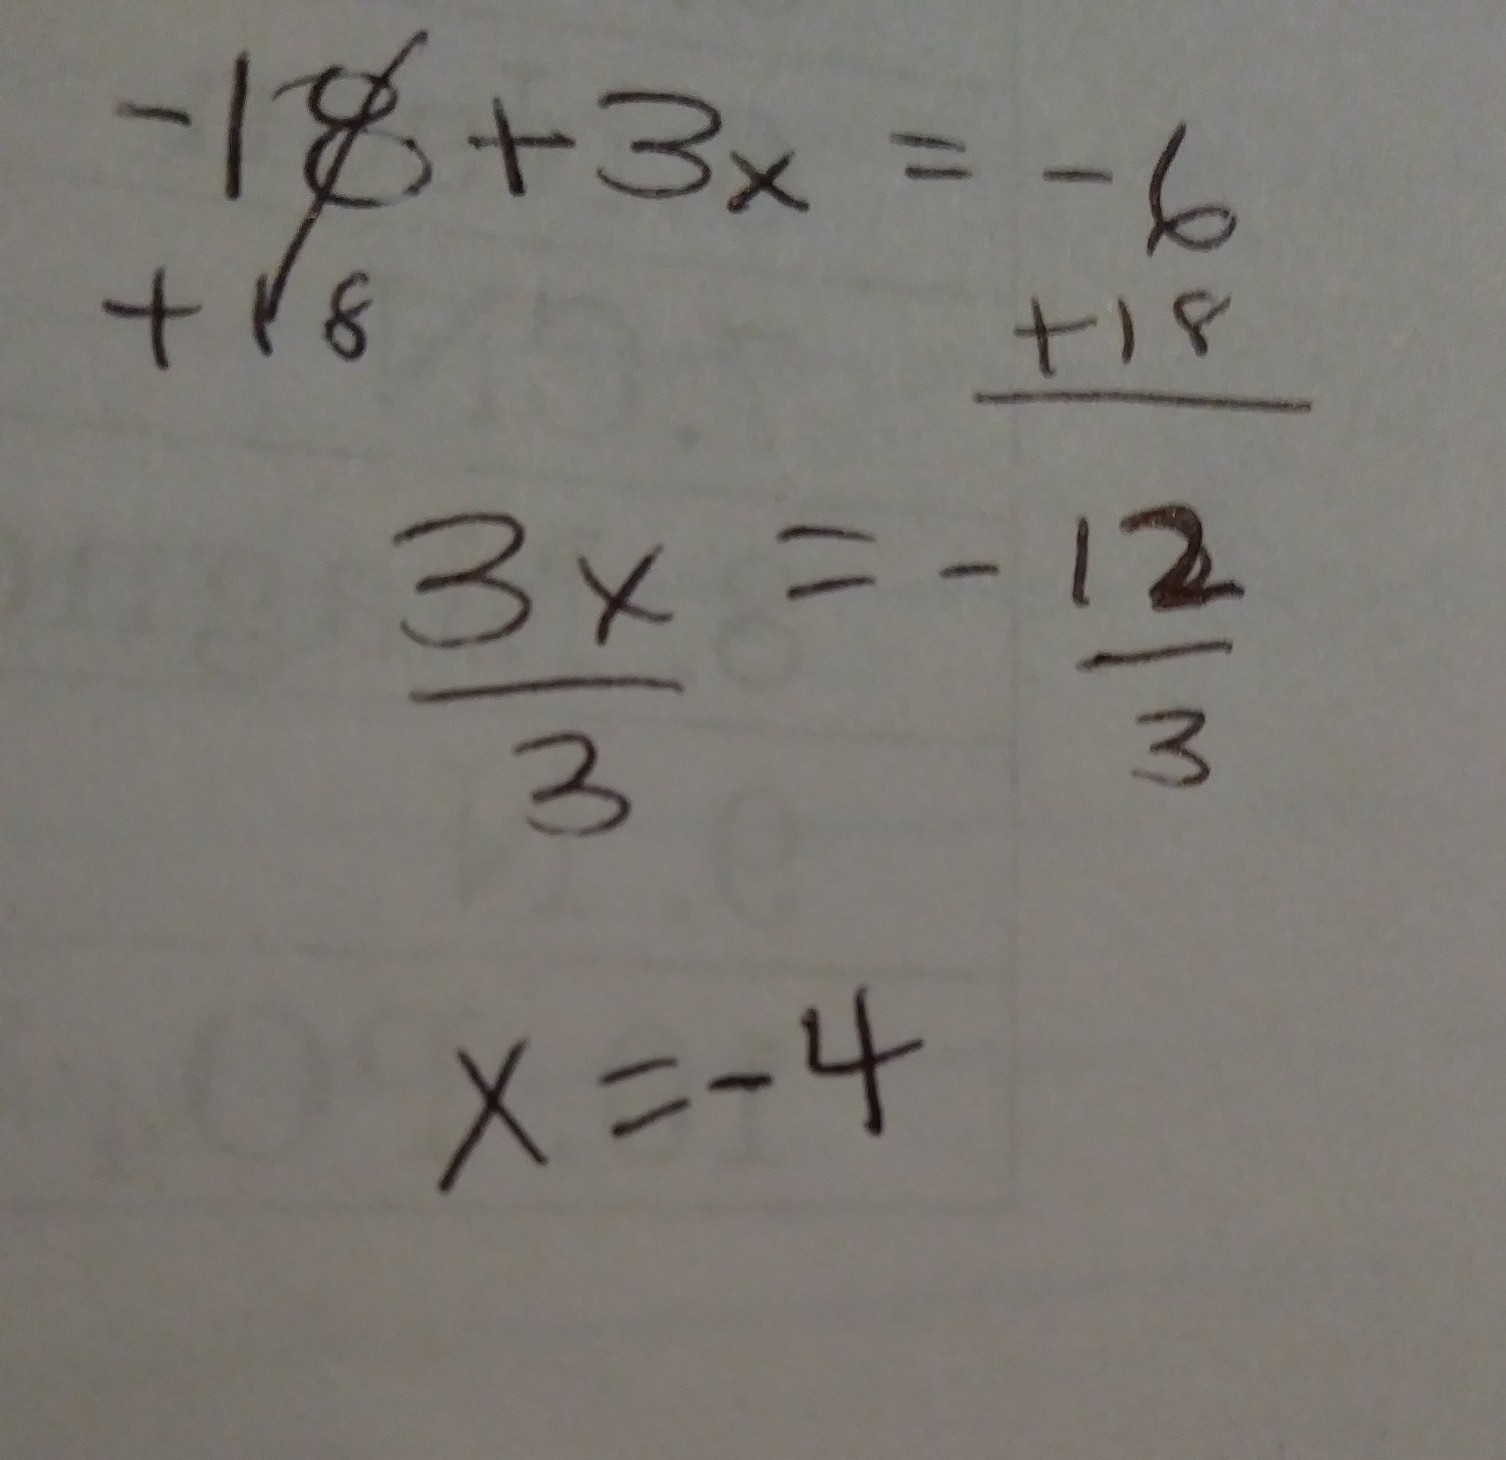 -18 + 3x = -6
+18 +18
3x = -12
3 3
x = -4